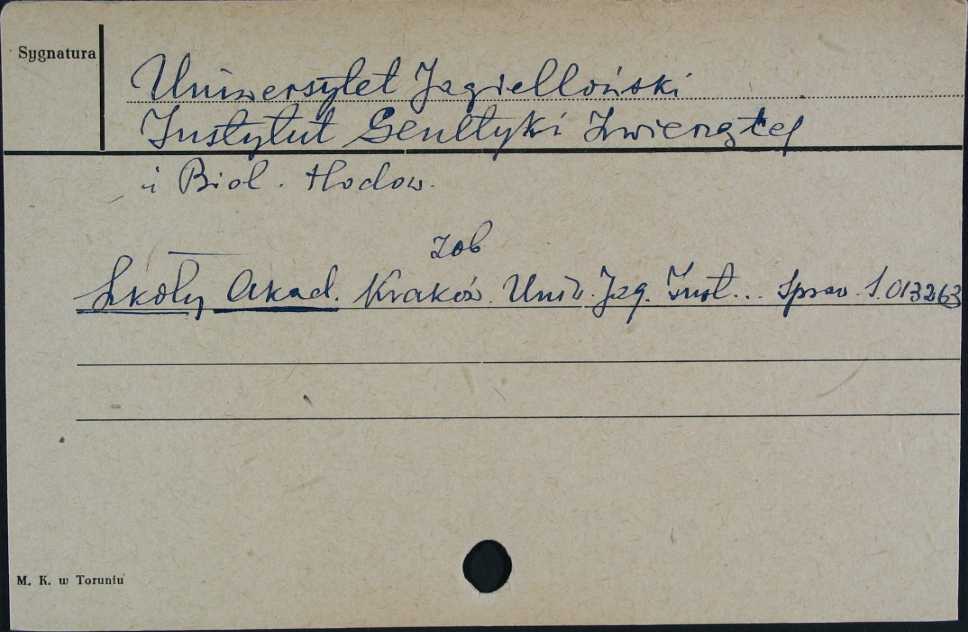 Sygnatura
Uniwersytet Jagielloński
Instytut Genetyki Zwierząt
i Biol. Hodow.
zob
Szkoły Akad. Kraków. Uniw. Jag. Inst... Spraw. S.013263
M. K. w Toruniu